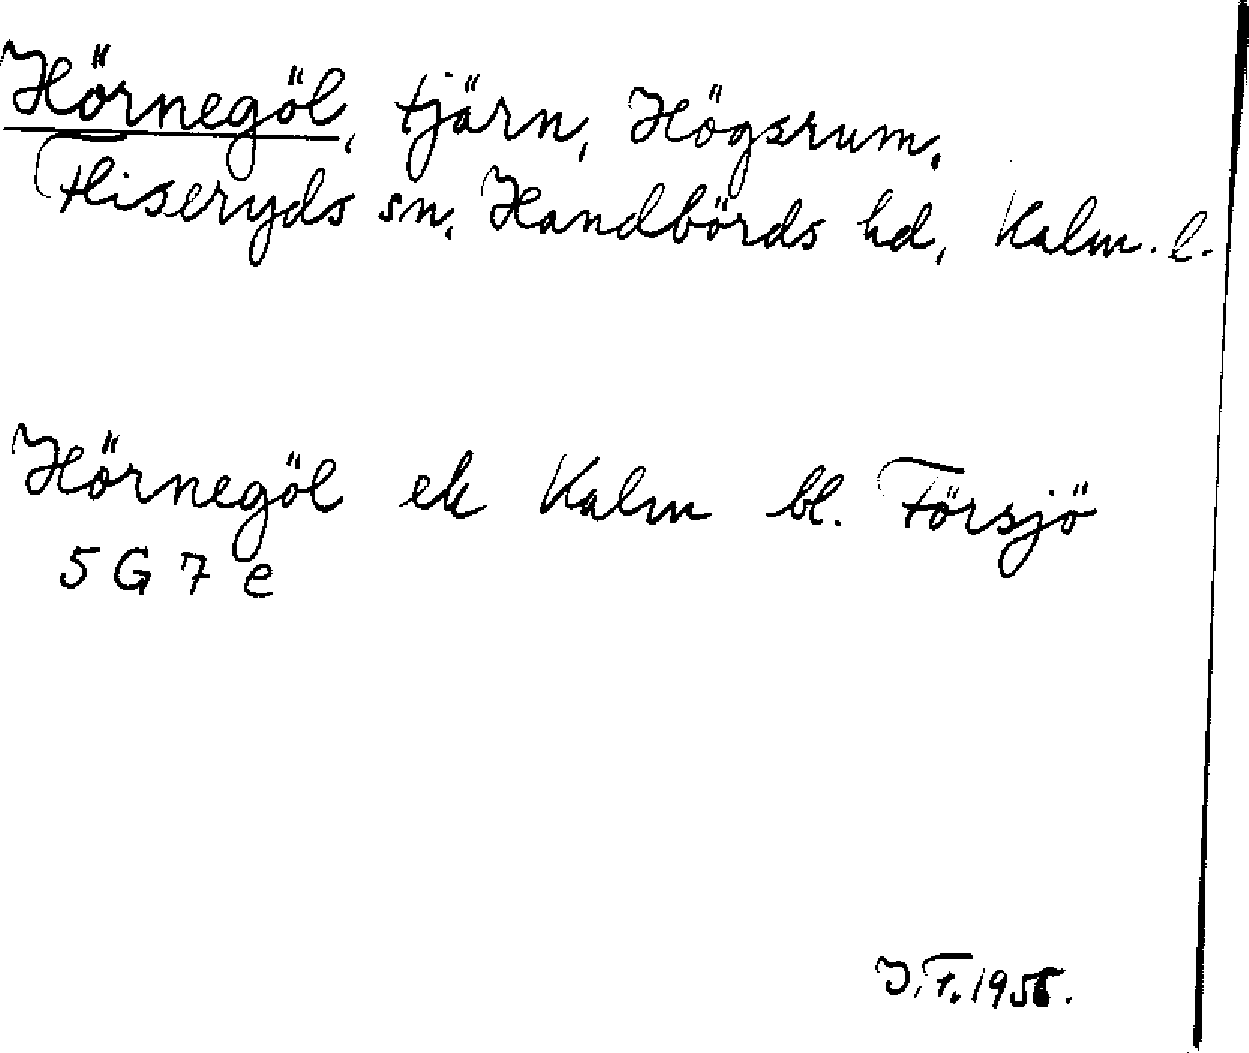 Hörnegöl, tjärn, Högsrum,
Fliseryds sn, Handbörds hd, Kalm. l.
Hörnegöl ek Kalm bl. Försjö
5 G 7 e
J.F. 1956.